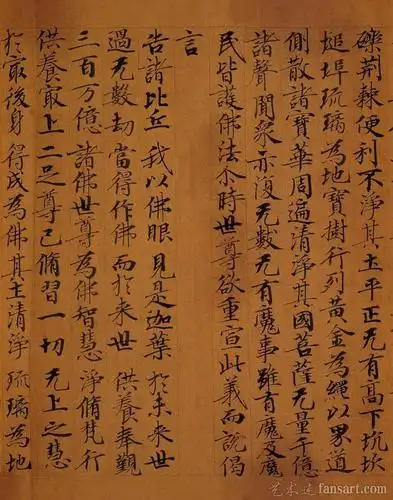 礫荆棘便利不淨其土平正无有高下坑坎
塠埠琉璃為地寶樹行列黃金為繩以界道
側散諸寶華周遍清淨其國菩薩无量千億
諸聲聞衆亦復无數无有魔事雖有魔及魔
民皆護佛法尒時世尊欲重宣此義而說偈
言
告諸比丘 我以佛眼 見是迦葉 於未来世
過无數劫 當得作佛 而於来世 供養奉覲
三百万億 諸佛世尊 為佛智慧 淨脩梵行
供養冣上 二足尊已 脩習一切 无上之慧
於冣後身 得成為佛 其土清淨 琉璃為地
艺术迷 fansart.com